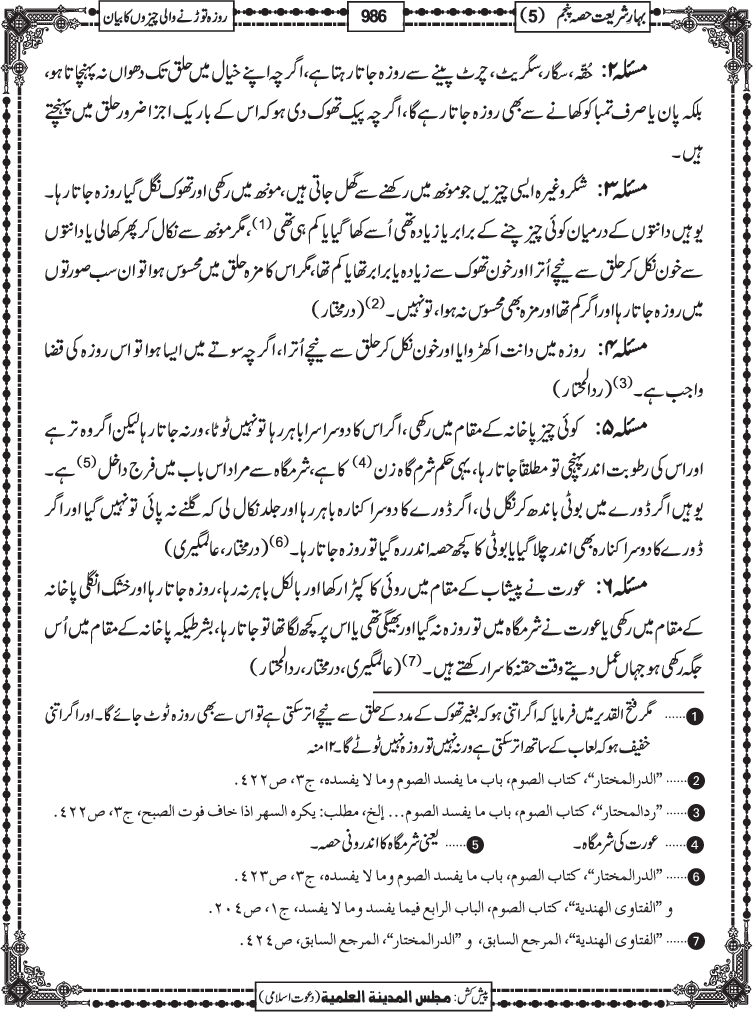 بہار شریعت حصہ پنجم (5)
986
روزہ توڑنے والی چیزوں کا بیان
مسئلہ ۲: حُقّہ، سگار، سگریٹ، چرٹ پینے سے روزہ جاتا رہتا ہے، اگرچہ اپنے خیال میں حلق تک دھواں نہ پہنچاتا ہو،
بلکہ پان یا صرف تمباکو کھانے سے بھی روزہ جاتا رہے گا، اگرچہ پیک تھوک دی ہو کہ اس کے باریک اجزا ضرور حلق میں پہنچتے
ہیں۔
مسئلہ ۳: شکر وغیرہ ایسی چیزیں جو مونھ میں رکھنے سے گھل جاتی ہیں، مونھ میں رکھی اور تھوک نگل گیا روزہ جاتا رہا۔
یوہیں دانتوں کے درمیان کوئی چیز چنے کے برابر یا زیادہ تھی اُسے کھا گیا یا کم ہی تھی (1)، مگر مونھ سے نکال کر پھر کھالی یا دانتوں
سے خون نکل کر حلق سے نیچے اُترا اور خون تھوک سے زیادہ یا برابر تھا یا کم تھا، مگر اس کا مزہ حلق میں محسوس ہوا تو ان سب صورتوں
میں روزہ جاتا رہا اور اگر کم تھا اور مزہ بھی محسوس نہ ہوا، تو نہیں۔(2) (درمختار)
مسئلہ ۴: روزہ میں دانت اکھڑوایا اور خون نکل کر حلق سے نیچے اُترا، اگرچہ سوتے میں ایسا ہوا تو اس روزہ کی قضا
واجب ہے۔(3) (ردالمحتار)
مسئلہ ۵: کوئی چیز پاخانہ کے مقام میں رکھی، اگر اس کا دوسرا سرا باہر رہا تو نہیں ٹوٹا، ورنہ جاتا رہا لیکن اگر وہ تر ہے
اور اس کی رطوبت اندر پہنچی تو مطلقاً جاتا رہا، یہی حکم شرم گاہ زن (4) کا ہے، شرمگاہ سے مراد اس باب میں فرج داخل (5) ہے۔
یوہیں اگر ڈورے میں بوٹی باندھ کر نگل لی، اگر ڈورے کا دوسرا کنارہ باہر رہا اور جلد نکال لی کہ گلنے نہ پائی تو نہیں گیا اور اگر
ڈورے کا دوسرا کنارہ بھی اندر چلا گیا یا بوٹی کا کچھ حصہ اندر رہ گیا تو روزہ جاتا رہا۔(6) (درمختار، عالمگیری)
مسئلہ ۶: عورت نے پیشاب کے مقام میں روئی کا کپڑا رکھا اور بالکل باہر نہ رہا، روزہ جاتا رہا اور خشک انگلی پاخانہ
کے مقام میں رکھی یا عورت نے شرمگاہ میں تو روزہ نہ گیا اور بھیگی تھی یا اس پر کچھ لگا تھا تو جاتا رہا، بشرطیکہ پاخانہ کے مقام میں اُس
جگہ رکھی ہو جہاں عمل دیتے وقت حقنہ کا سرا رکھتے ہیں۔(7) (عالمگیری، درمختار، ردالمحتار)
1 ...... مگر فتح القدیر میں فرمایا کہ اگر اتنی ہو کہ بغیر تھوک کے مدد کے حلق سے نیچے اتر سکتی ہے تو اس سے بھی روزہ ٹوٹ جائے گا۔ اور اگر اتنی
خفیف ہو کہ لعاب کے ساتھ اتر سکتی ہے ورنہ نہیں تو روزہ نہیں ٹوٹے گا۔ ۱۲ منہ
2 ...... ”الدرالمختار“، کتاب الصوم، باب ما یفسد الصوم وما لا یفسده، ج۳، ص۴۲۲.
3 ...... ”ردالمحتار“، کتاب الصوم، باب ما یفسد الصوم... إلخ، مطلب: یکره السهر اذا خاف فوت الصبح، ج۳، ص۴۲۲.
4 ...... عورت کی شرمگاہ۔ 5 ...... یعنی شرمگاہ کا اندرونی حصہ۔
6 ...... ”الدرالمختار“، کتاب الصوم، باب ما یفسد الصوم وما لا یفسده، ج۳، ص۴۲۳.
و ”الفتاوی الهندیة“، کتاب الصوم، الباب الرابع فیما یفسد وما لا یفسد، ج۱، ص۲۰۴.
7 ...... ”الفتاوی الهندیة“، المرجع السابق، و ”الدرالمختار“، المرجع السابق، ص۴۲۴.
پیش کش: مجلس المدینة العلمیة (دعوت اسلامی)